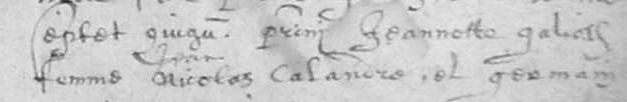 septet quinqu. prim Jeannette galiot
Jean
femme Nicolas Calandre, et German